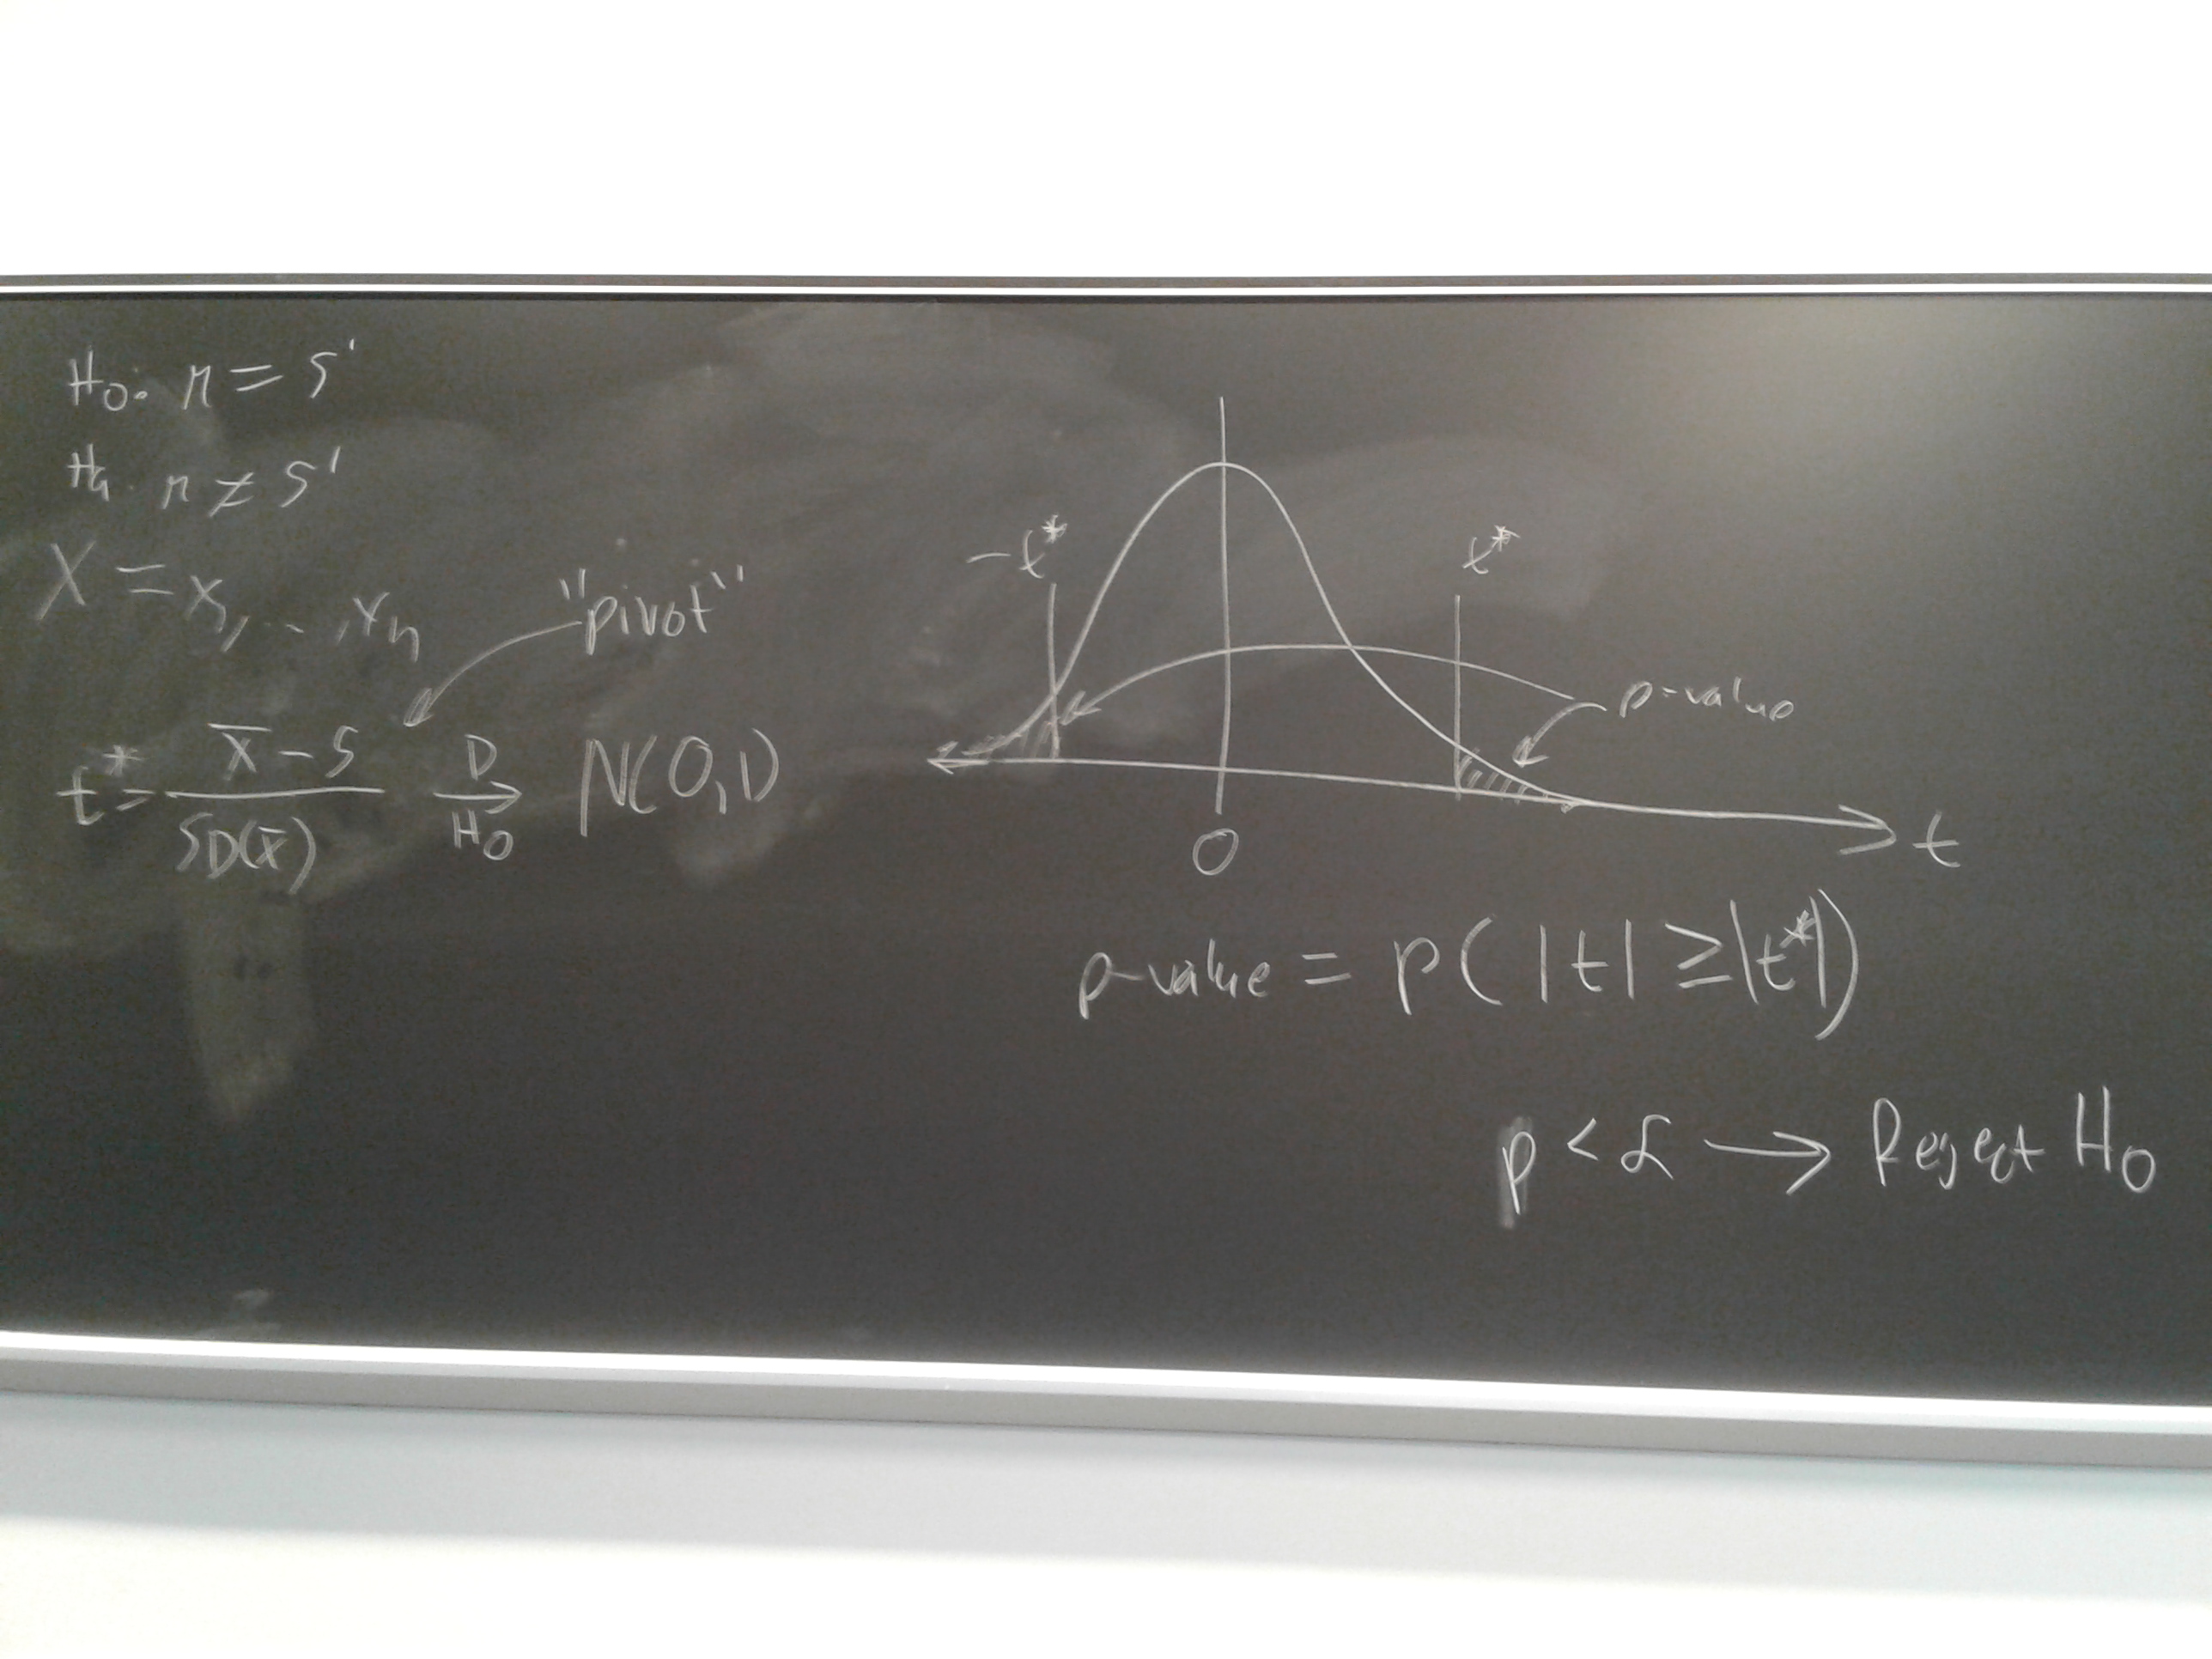 H₀: μ = 5'
H₁: μ ≠ 5'
X = x₁, ..., xₙ
"pivot"
t* = (x̄ - 5) / SD(x̄) →(D, H₀) N(0,1)
-t*
t*
p-value
0
t
p-value = P(|t| ≥ |t*|)
p < α → Reject H₀